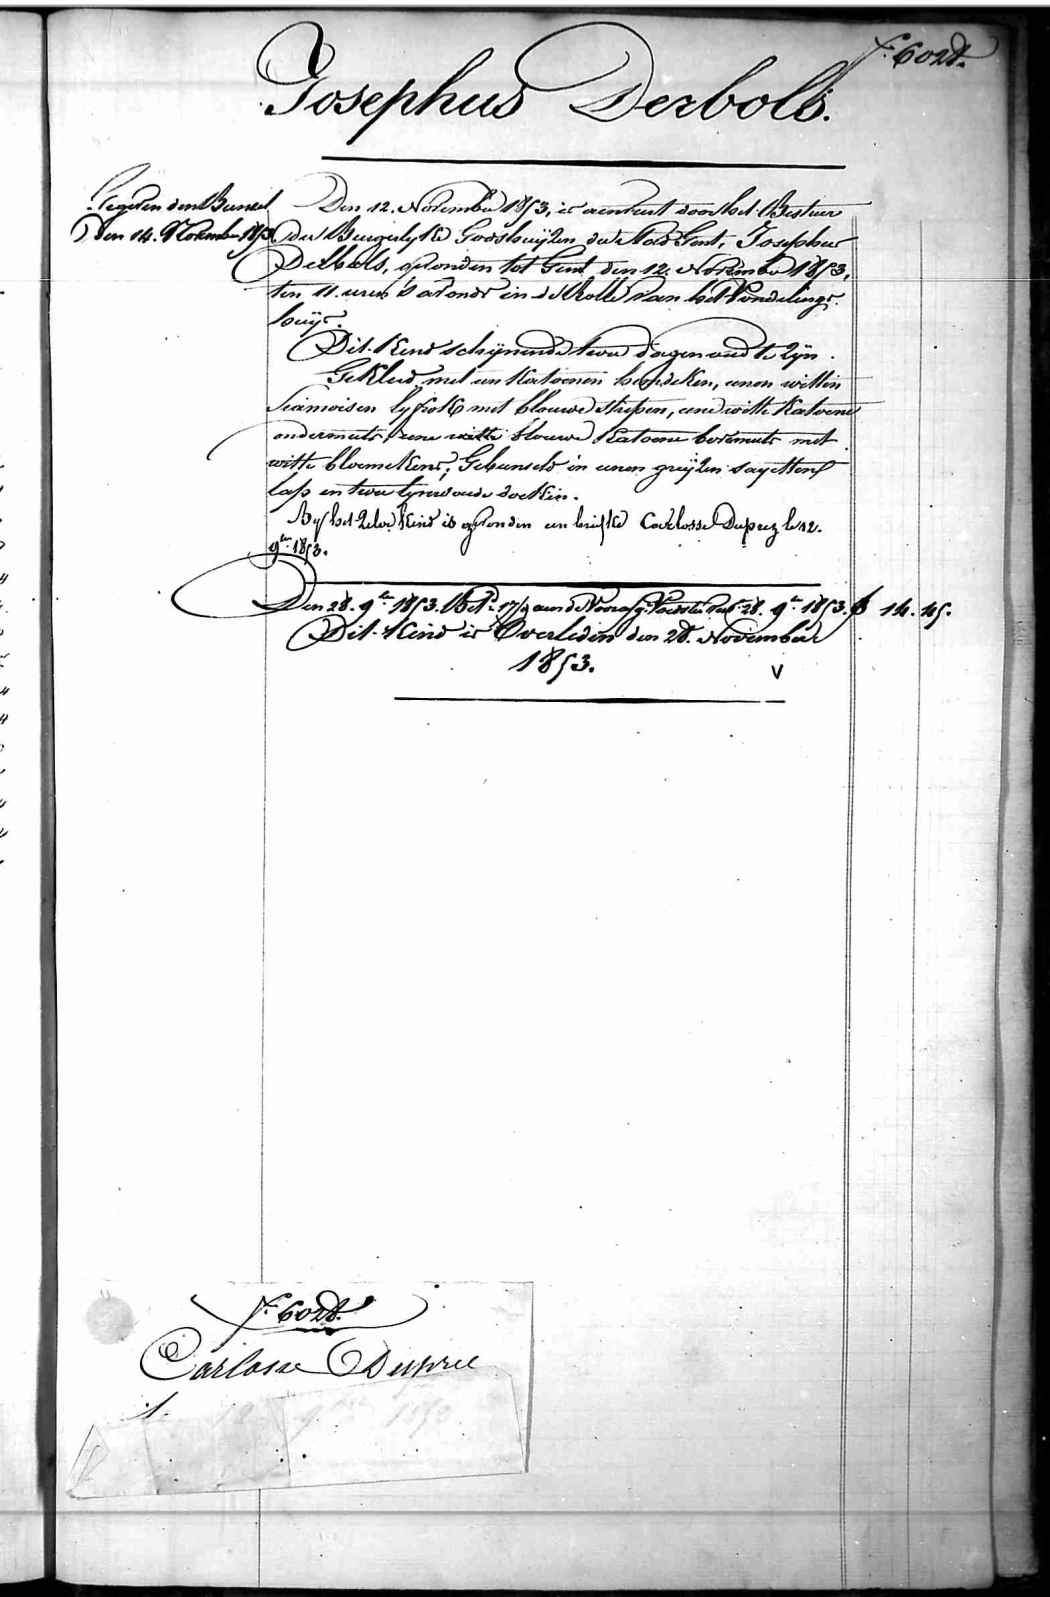 f.° 6028.
Josephus Derbols.
den Bureel
den 14. November 1853
Den 12. November 1853, is aenveert door het Bestuer
der Burgerlyke Godshuyzen der Stad Gent, Josephus
Derbols, gevonden tot Gent den 12. November 1853,
ten 11. uren 's avonds in de Rolle van het Vondelings-
huys.
Dit Kind schynende twee dagen oud te zyn.
Gekleed met een Katoenen hemdeken, eenen witten
siamoisen lyfrok met blauwe strepen, eene witte Katoene
ondermuts, eene witte blauwe Katoene bovemuts met
witte bloemekens, Gebunseld in eenen gryzen sayetten
lap en twee lynwoade doeken.
By het zelve Kind is gevonden een briefke Carlosse Duprez le 12.
9bre 1853.
Den 28. 9bre 1853. Bet. 17/ aen de Voedster 28. 9bre 1853. f 14.45.
Dit Kind is Overleden den 28. November
1853.
V
f.° 6028.
Carlosse Dupree
1.